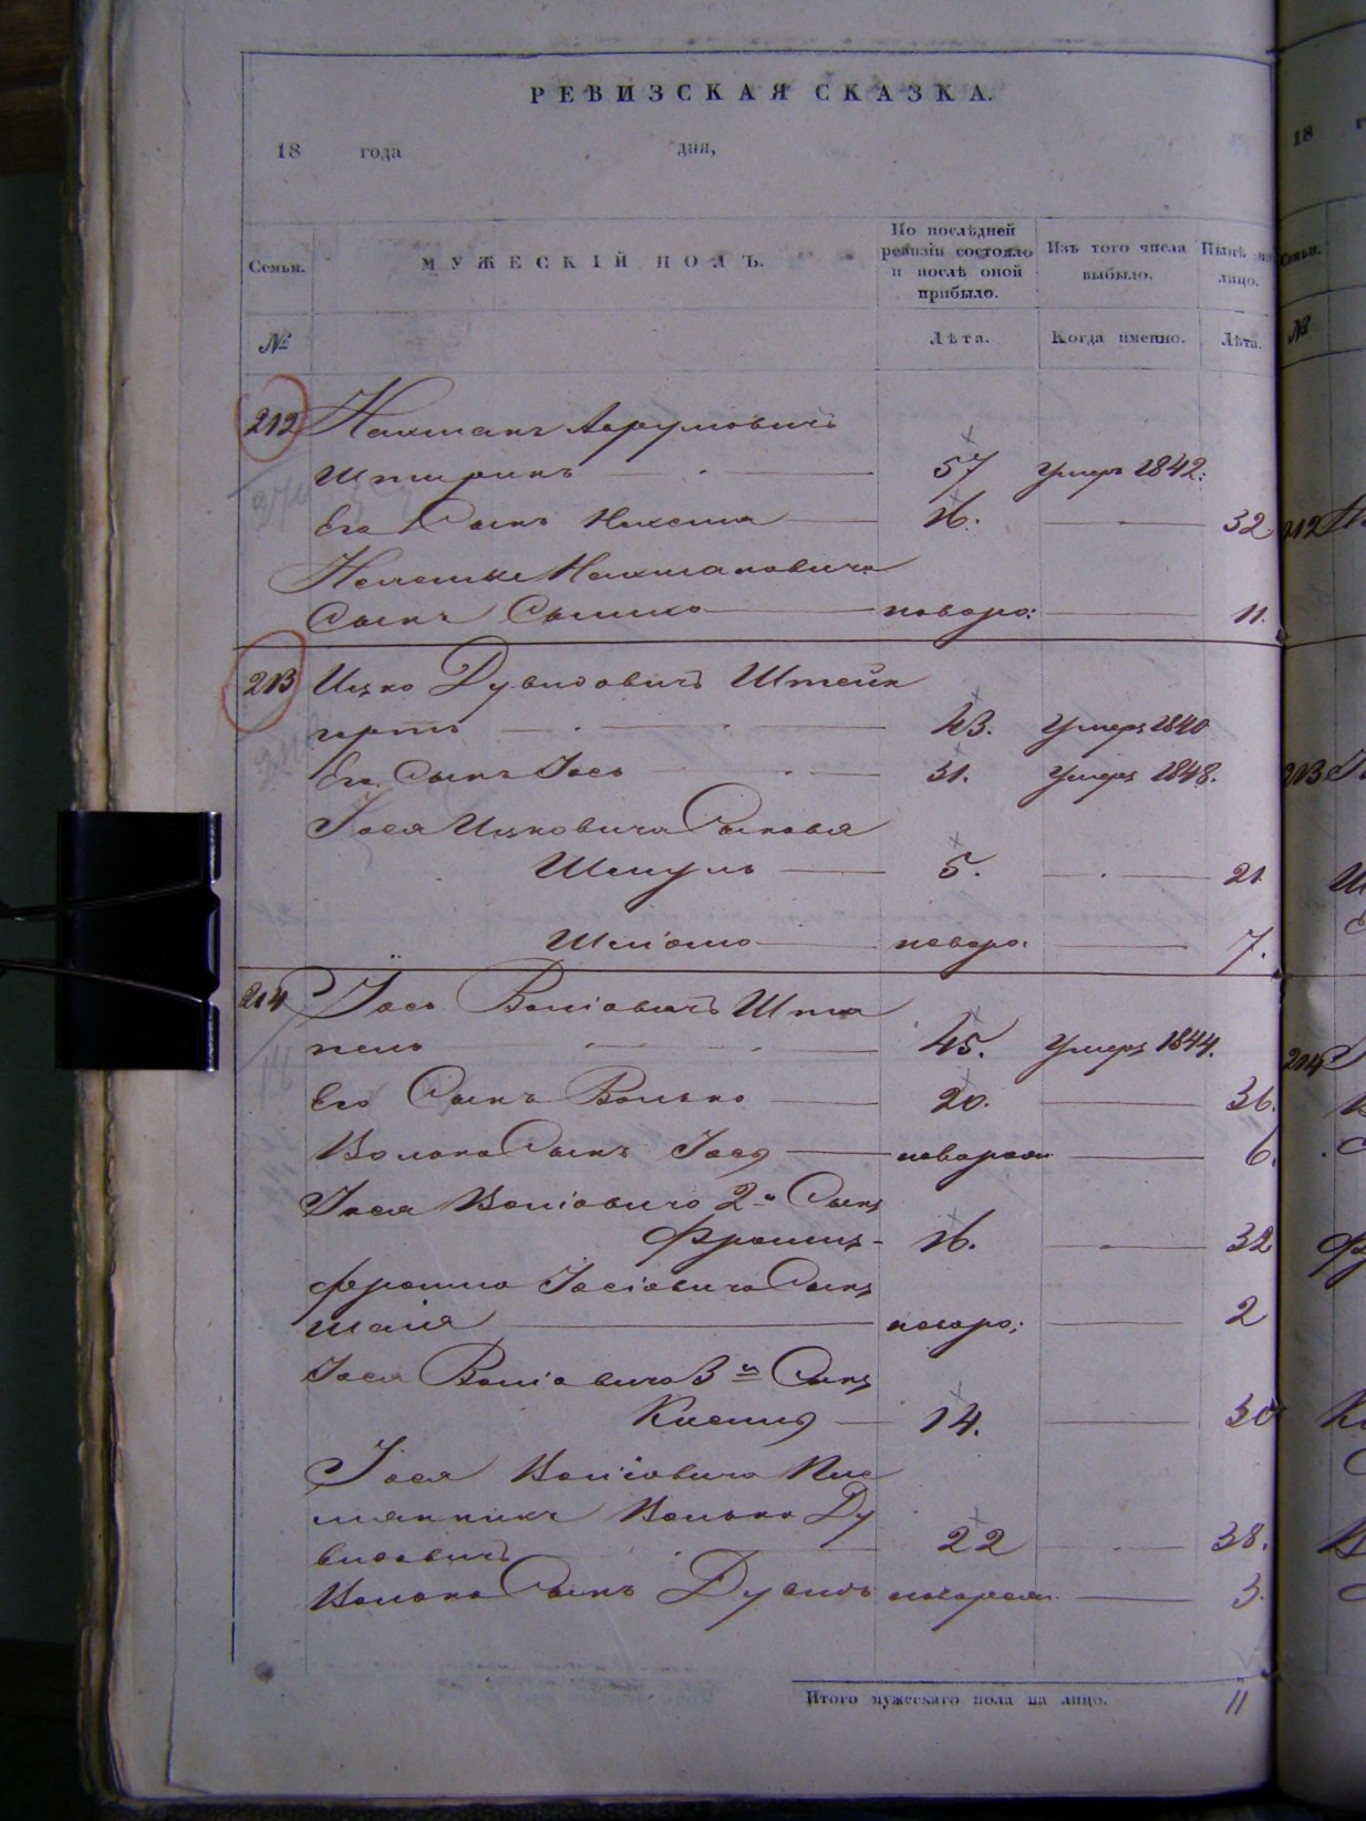 РЕВИЗСКАЯ СКАЗКА.
18 года дня,
Семьи. МУЖЕСКІЙ ПОЛЪ. По послѣдней ревизіи состояло и послѣ оной прибыло. Изъ того числа выбыло. Нынѣ на лицо.
№ Лѣта. Когда именно. Лѣта.
212 Нахманъ Аврумовичъ
57 умеръ 1842.
Его Сынъ 16. 32
Нахмановича
Сынъ новоро: 11.
213 Ицко Дувидовичъ Штейн
гартъ 43. Умеръ 1840
Его Сынъ Іось 31. Умеръ 1848.
Іося Ицковича Сыновья
Шмуль 5. 21
Шліома новоро. 7.
214 Іось Воліовичъ Шта
пель 45. Умеръ 1844.
Его Сынъ Волько 20. 36.
Волька Сынъ Іося новорож 6.
Іося Воліовича 2й Сынъ
Фроимъ 16. 32
Фроима Іосіовича Сынъ
Шаія новоро: 2
Іося Воліовича 3й Сынъ
14. 30
Іося Воліовича Пле
мянникъ Волько Ду
видовичъ 22 38.
Волька Сынъ Дувидъ новорож. 3.
Итого мужескаго пола на лицо. 11